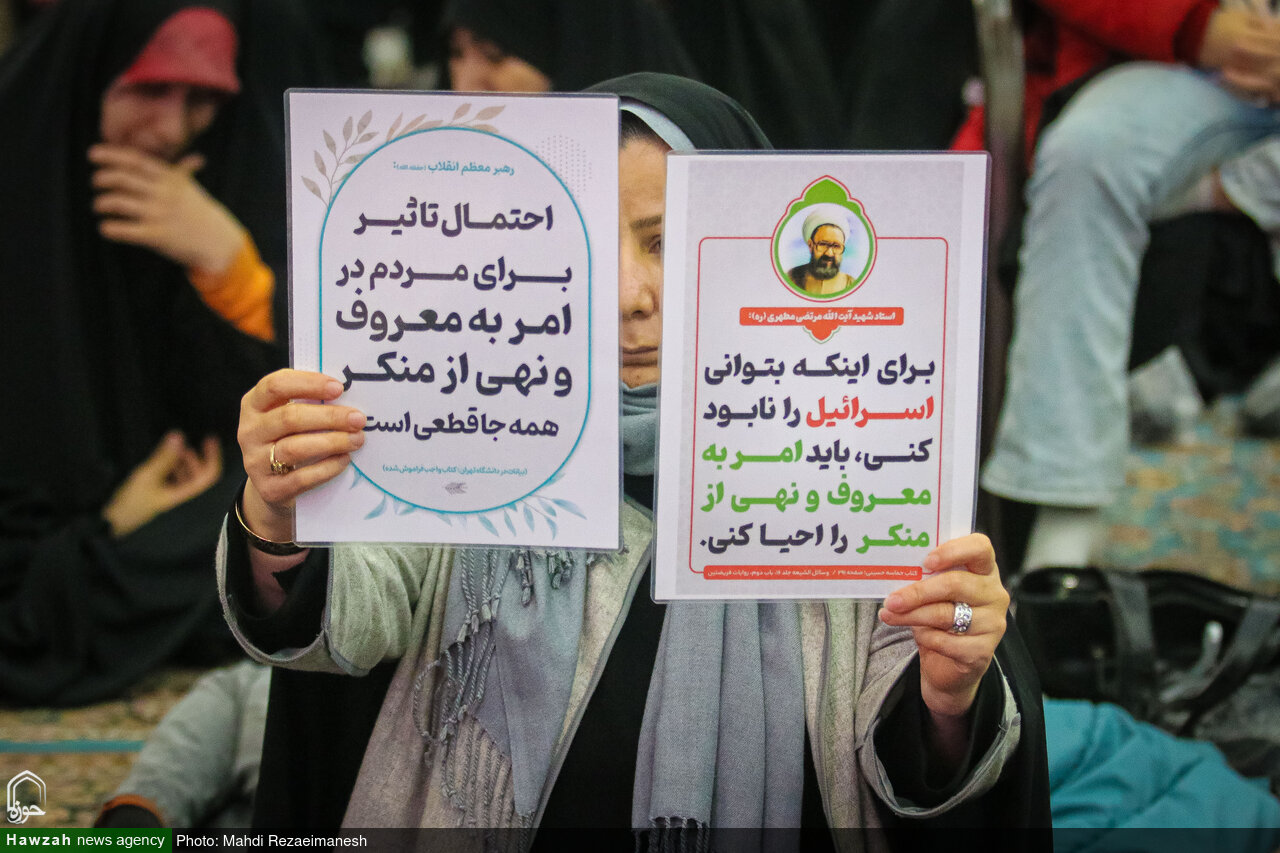 رهبر معظم انقلاب (حفظه الله):
احتمال تاثیر
برای مردم در
امر به معروف
و نهی از منکر
همه جا قطعی است
(بیانات در دانشگاه تهران؛ کتاب واجب فراموش شده)
استاد شهید آیت الله مرتضی مطهری (ره):
برای اینکه بتوانی
اسرائیل را نابود
کنی، باید امر به
معروف و نهی از
منکر را احیا کنی.
کتاب حماسه حسینی؛ صفحه / وسائل الشیعه جلد ۱۶، باب دوم، روایات فریضتین
حوزه
Hawzah news agency
Photo: Mahdi Rezaeimanesh